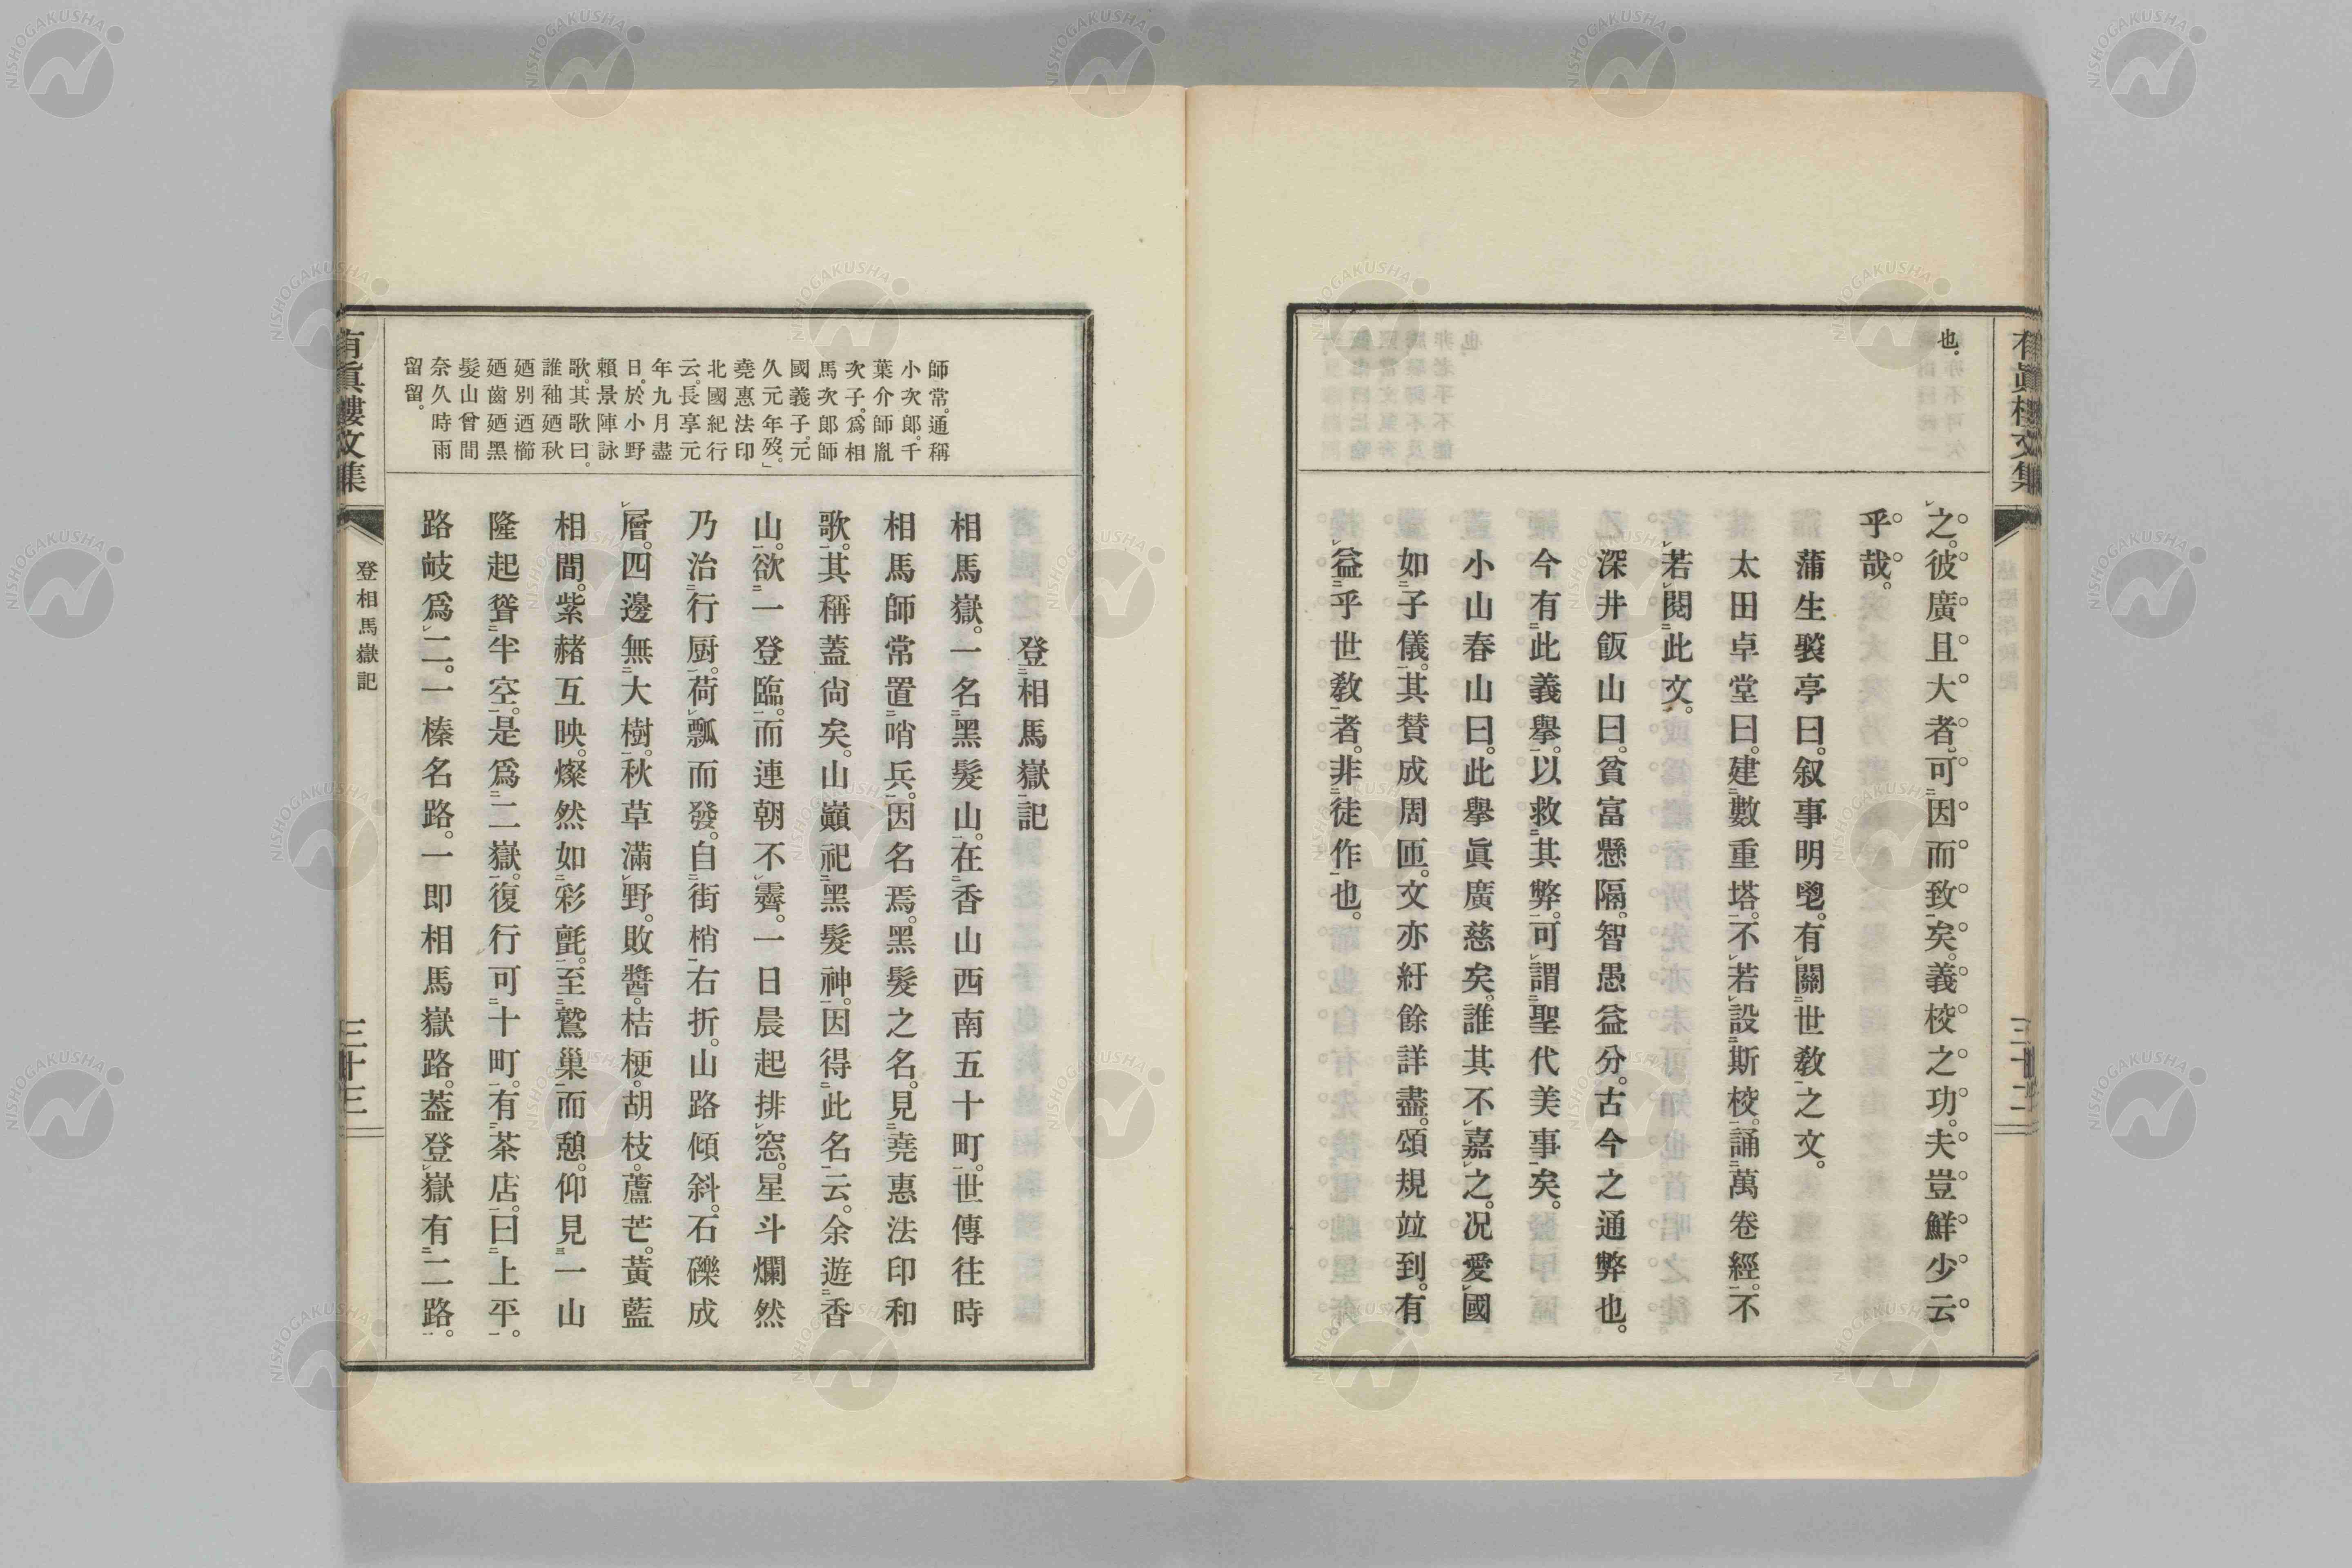 有眞樓文集
三十二
也。
之。彼廣且大者。可因而致矣。義校之功。夫豈鮮少云
乎哉。
蒲生褧亭曰。叙事明鬯。有關世敎之文。
太田卓堂曰。建數重塔。不若設斯校。誦萬卷經。不
若閱此文。
深井飯山曰。貧富懸隔。智愚益分。古今之通弊也。
今有此義擧。以救其弊。可謂聖代美事矣。
小山春山曰。此擧眞廣慈矣。誰其不嘉之。况愛國
如子儀。其賛成周匝。文亦紆餘詳盡。頌規竝到。有
益乎世敎者。非徒作也。
師常。通稱
小次郞。千
葉介師胤
次子。爲相
馬次郞師
國義子。元
久元年歿。」
堯惠法印
北國紀行
云。長享元
年九月盡
日。於小野
賴景陣詠
歌。其歌曰。
誰袖廼秋
廼別迺櫛
廼齒廼黑
髮山曾間
奈久時雨
留留。
登相馬嶽記
相馬嶽。一名黑髮山。在香山西南五十町。世傳往時
相馬師常置哨兵。因名焉。黑髮之名。見堯惠法印和
歌。其稱蓋尙矣。山巓祀黑髮神。因得此名云。余遊香
山。欲一登臨。而連朝不霽。一日晨起排窓。星斗爛然
乃治行厨。荷瓢而發。自街梢右折。山路傾斜。石磯成
層。四邊無大樹。秋草滿野。敗醬。桔梗。胡枝。蘆芒。黃藍
相間。紫赭互映。燦然如彩氈。至鷲巢而憩。仰見一山
隆起聳半空。是爲二嶽。復行可十町。有茶店。曰上平。
路岐爲二。一榛名路。一卽相馬嶽路。蓋登嶽有二路。
有眞樓文集
登相馬嶽記
三十三